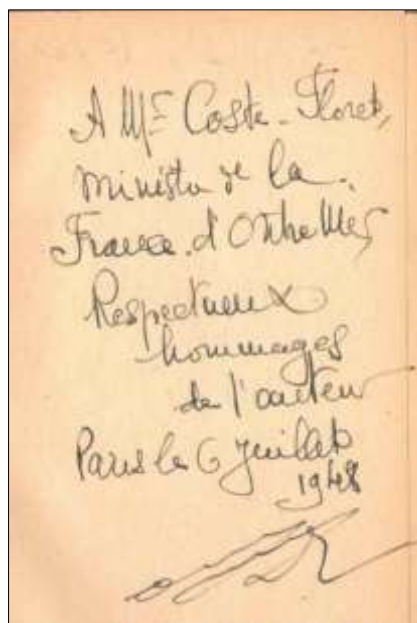 A Mr Coste-Floret,
Ministre de la
France d'Outre Mer
Respectueux
hommages
de l'auteur
Paris le 6 Juillet
1948